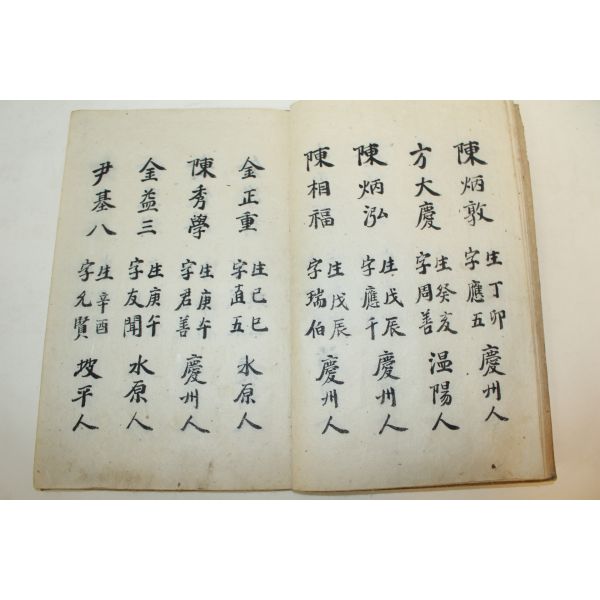 陳炳敦 生丁卯 字應五 慶州人
方大慶 生癸亥 字周善 温陽人
陳炳泓 生戊辰 字應千 慶州人
陳相福 生戊辰 字瑞伯 慶州人
金正重 生己巳 字直五 水原人
陳秀學 生庚午 字君善 慶州人
金益三 生庚午 字友聞 水原人
尹基八 生辛酉 字元賢 坡平人